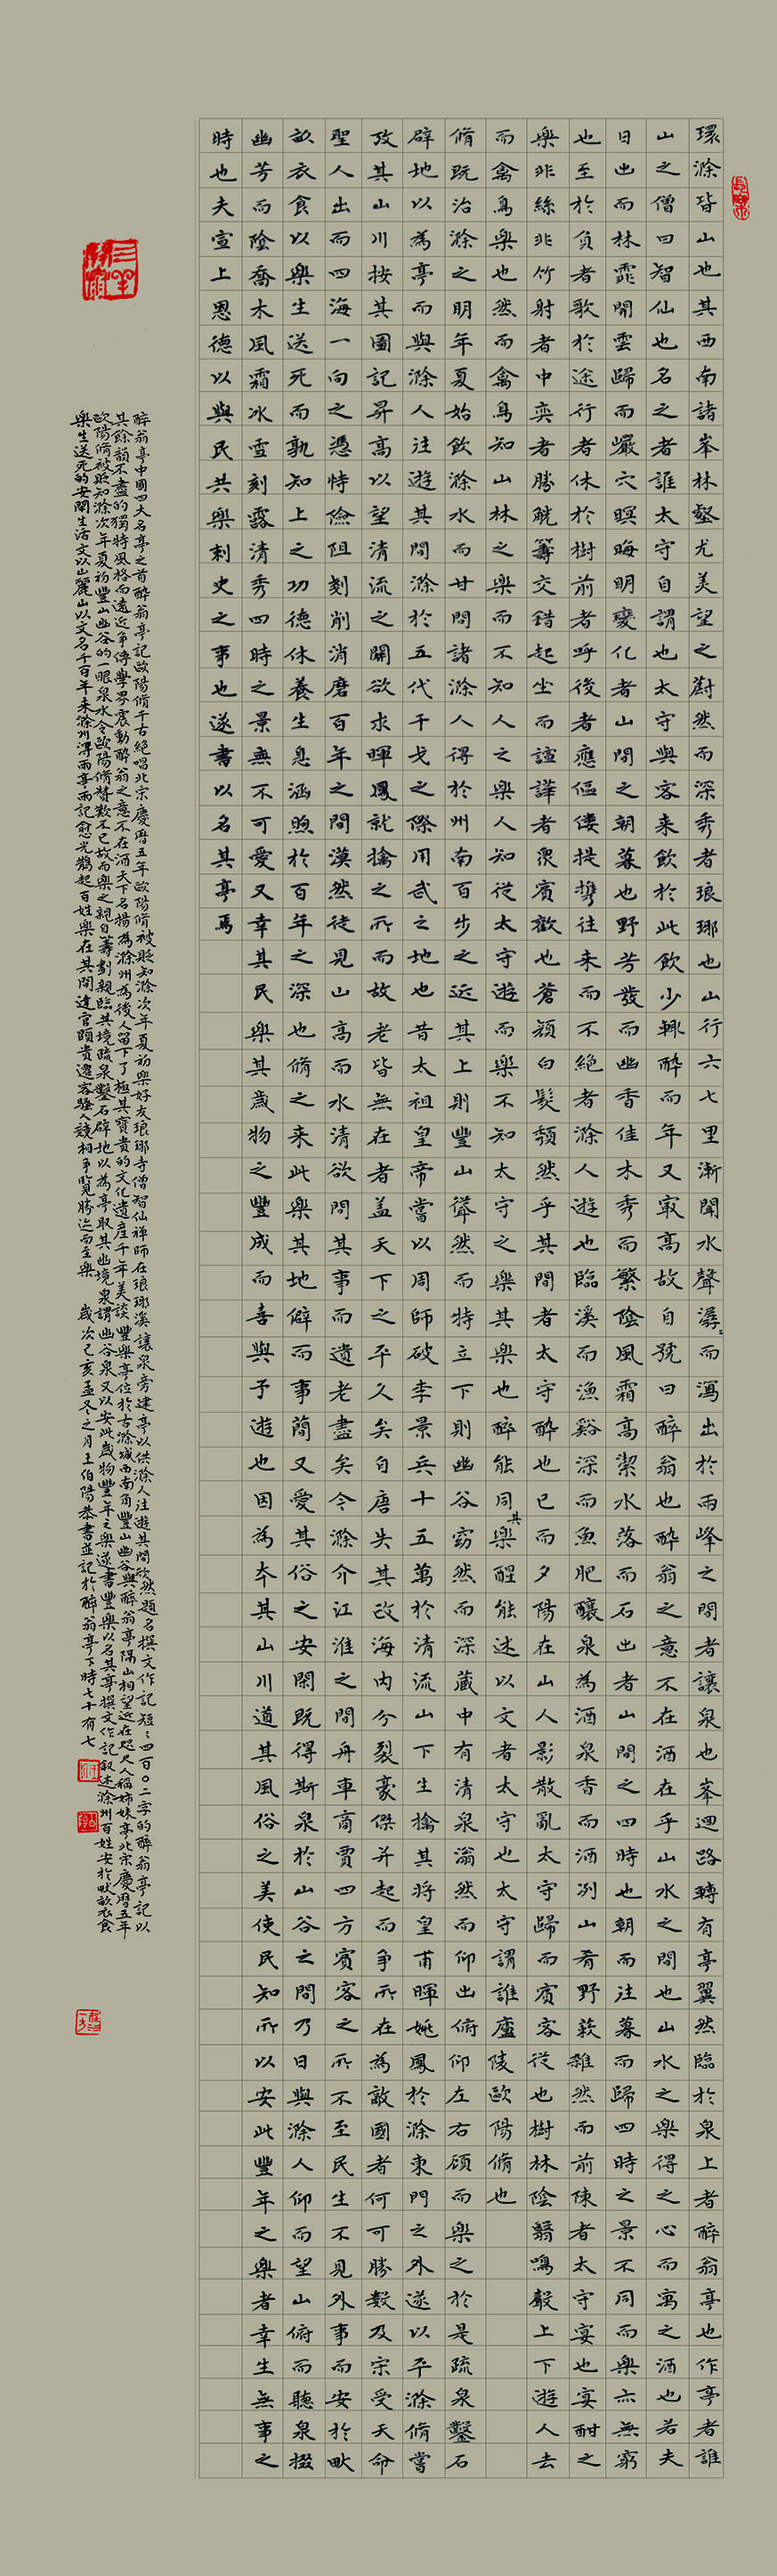 環滁皆山也其西南諸峯林壑尤美望之蔚然而深秀者琅琊也山行六七里漸聞水聲潺〻而瀉出於兩峰之間者讓泉也峯迴路轉有亭翼然臨於泉上者醉翁亭也作亭者誰
山之僧曰智仙也名之者誰太守自謂也太守與客来飲於此飲少輒醉而年又寂高故自號曰醉翁也醉翁之意不在酒在乎山水之間也山水之樂得之心而寓之酒也若夫
日出而林霏開雲歸而巖穴暝晦明變化者山間之朝暮也野芳發而幽香佳木秀而繁陰風霜高潔水落而石出者山間之四時也朝而往暮而歸四時之景不同而樂亦無窮
也至於負者歌於途行者休於樹前者呼後者應傴僂提攜往来而不絕者滁人遊也臨溪而漁谿深而魚肥釀泉為酒泉香而酒洌山肴野蔌雜然而前陳者太守宴也宴酣之
樂非絲非竹射者中奕者勝觥籌交錯起坐而諠譁者衆賓歡也蒼顏白髮頹然乎其間者太守醉也已而夕陽在山人影散亂太守歸而賓客從也樹林陰翳鳴聲上下遊人去
而禽鳥樂也然而禽鳥知山林之樂而不知人之樂人知從太守遊而樂不知太守之樂其樂也醉能同其樂醒能述以文者太守也太守謂誰廬陵歐陽脩也
脩既治滁之明年夏始飲滁水而甘問諸滁人得於州南百步之近其上則豐山聳然而特立下則幽谷窈然而深藏中有清泉滃然而仰出俯仰左右顧而樂之於是疏泉鑿石
辟地以為亭而與滁人往遊其間滁於五代干戈之際用武之地也昔太祖皇帝嘗以周師破李景兵十五萬於清流山下生擒其將皇甫暉姚鳳於滁東門之外遂以平滁脩嘗
攷其山川按其圖記昇高以望清流之關欲求暉鳳就擒之所而故老皆無在者盖天下之平久矣自唐失其政海内分裂豪傑并起而争所在為敵國者何可勝數及宋受天命
聖人出而四海一向之憑恃儉阻剗削消磨百年之間漠然徒見山高而水清欲問其事而遺老盡矣今滁介江淮之間舟車商賈四方賓客之所不至民生不見外事而安於畎
畝衣食以樂生送死而孰知上之功德休養生息涵煦於百年之深也脩之来此樂其地僻而事簡又愛其俗之安閑既得斯泉於山谷之間乃日與滁人仰而望山俯而聽泉掇
幽芳而陰喬木風霜冰雪刻露清秀四時之景無不可愛又幸其民樂其歲物之豐成而喜與予遊也因為本其山川道其風俗之美使民知所以安此豐年之樂者幸生無事之
時也夫宣上恩德以與民共樂刺史之事也遂書以名其亭焉
醉翁亭中國四大名亭之首醉翁亭記歐陽脩千古絕唱北宋慶曆五年歐陽脩被貶知滁次年夏初樂好友琅琊寺僧智仙禅師在琅琊溪讓泉旁建亭以供滁人往遊其間欣然題名撰文作記短〻四百〇二字的醉翁亭記以
其餘韻不盡的獨特風格而遠近争傳學界震動醉翁之意不在酒天下名揚為滁州為後人留下了極其寶貴的文化遺産千年美談豐樂亭位於古滁城西南角豐山幽谷與醉翁亭隔山相望近在咫尺人稱姊妹亭北宋慶曆五年
歐陽脩被貶知滁次年夏初豐山幽谷的一眼泉水令歐陽脩賛歎不已故而樂之親自籌劃親臨其境疏泉鑿石辟地以為亭取其幽境泉謂幽谷泉又以安此歲物豐年之樂遂書豐樂以名其亭撰文作記叙述滁州百姓安於畎畝衣食
樂生送死的安閑生活文以山麗山以文名千百年来滁州得兩亭兩記愈光鵲起百姓樂在其間達官顕貴遷客騷人競相争覧勝迹而至樂 歲次己亥孟冬之月王伯陽恭書並記於醉翁亭下時七十有七